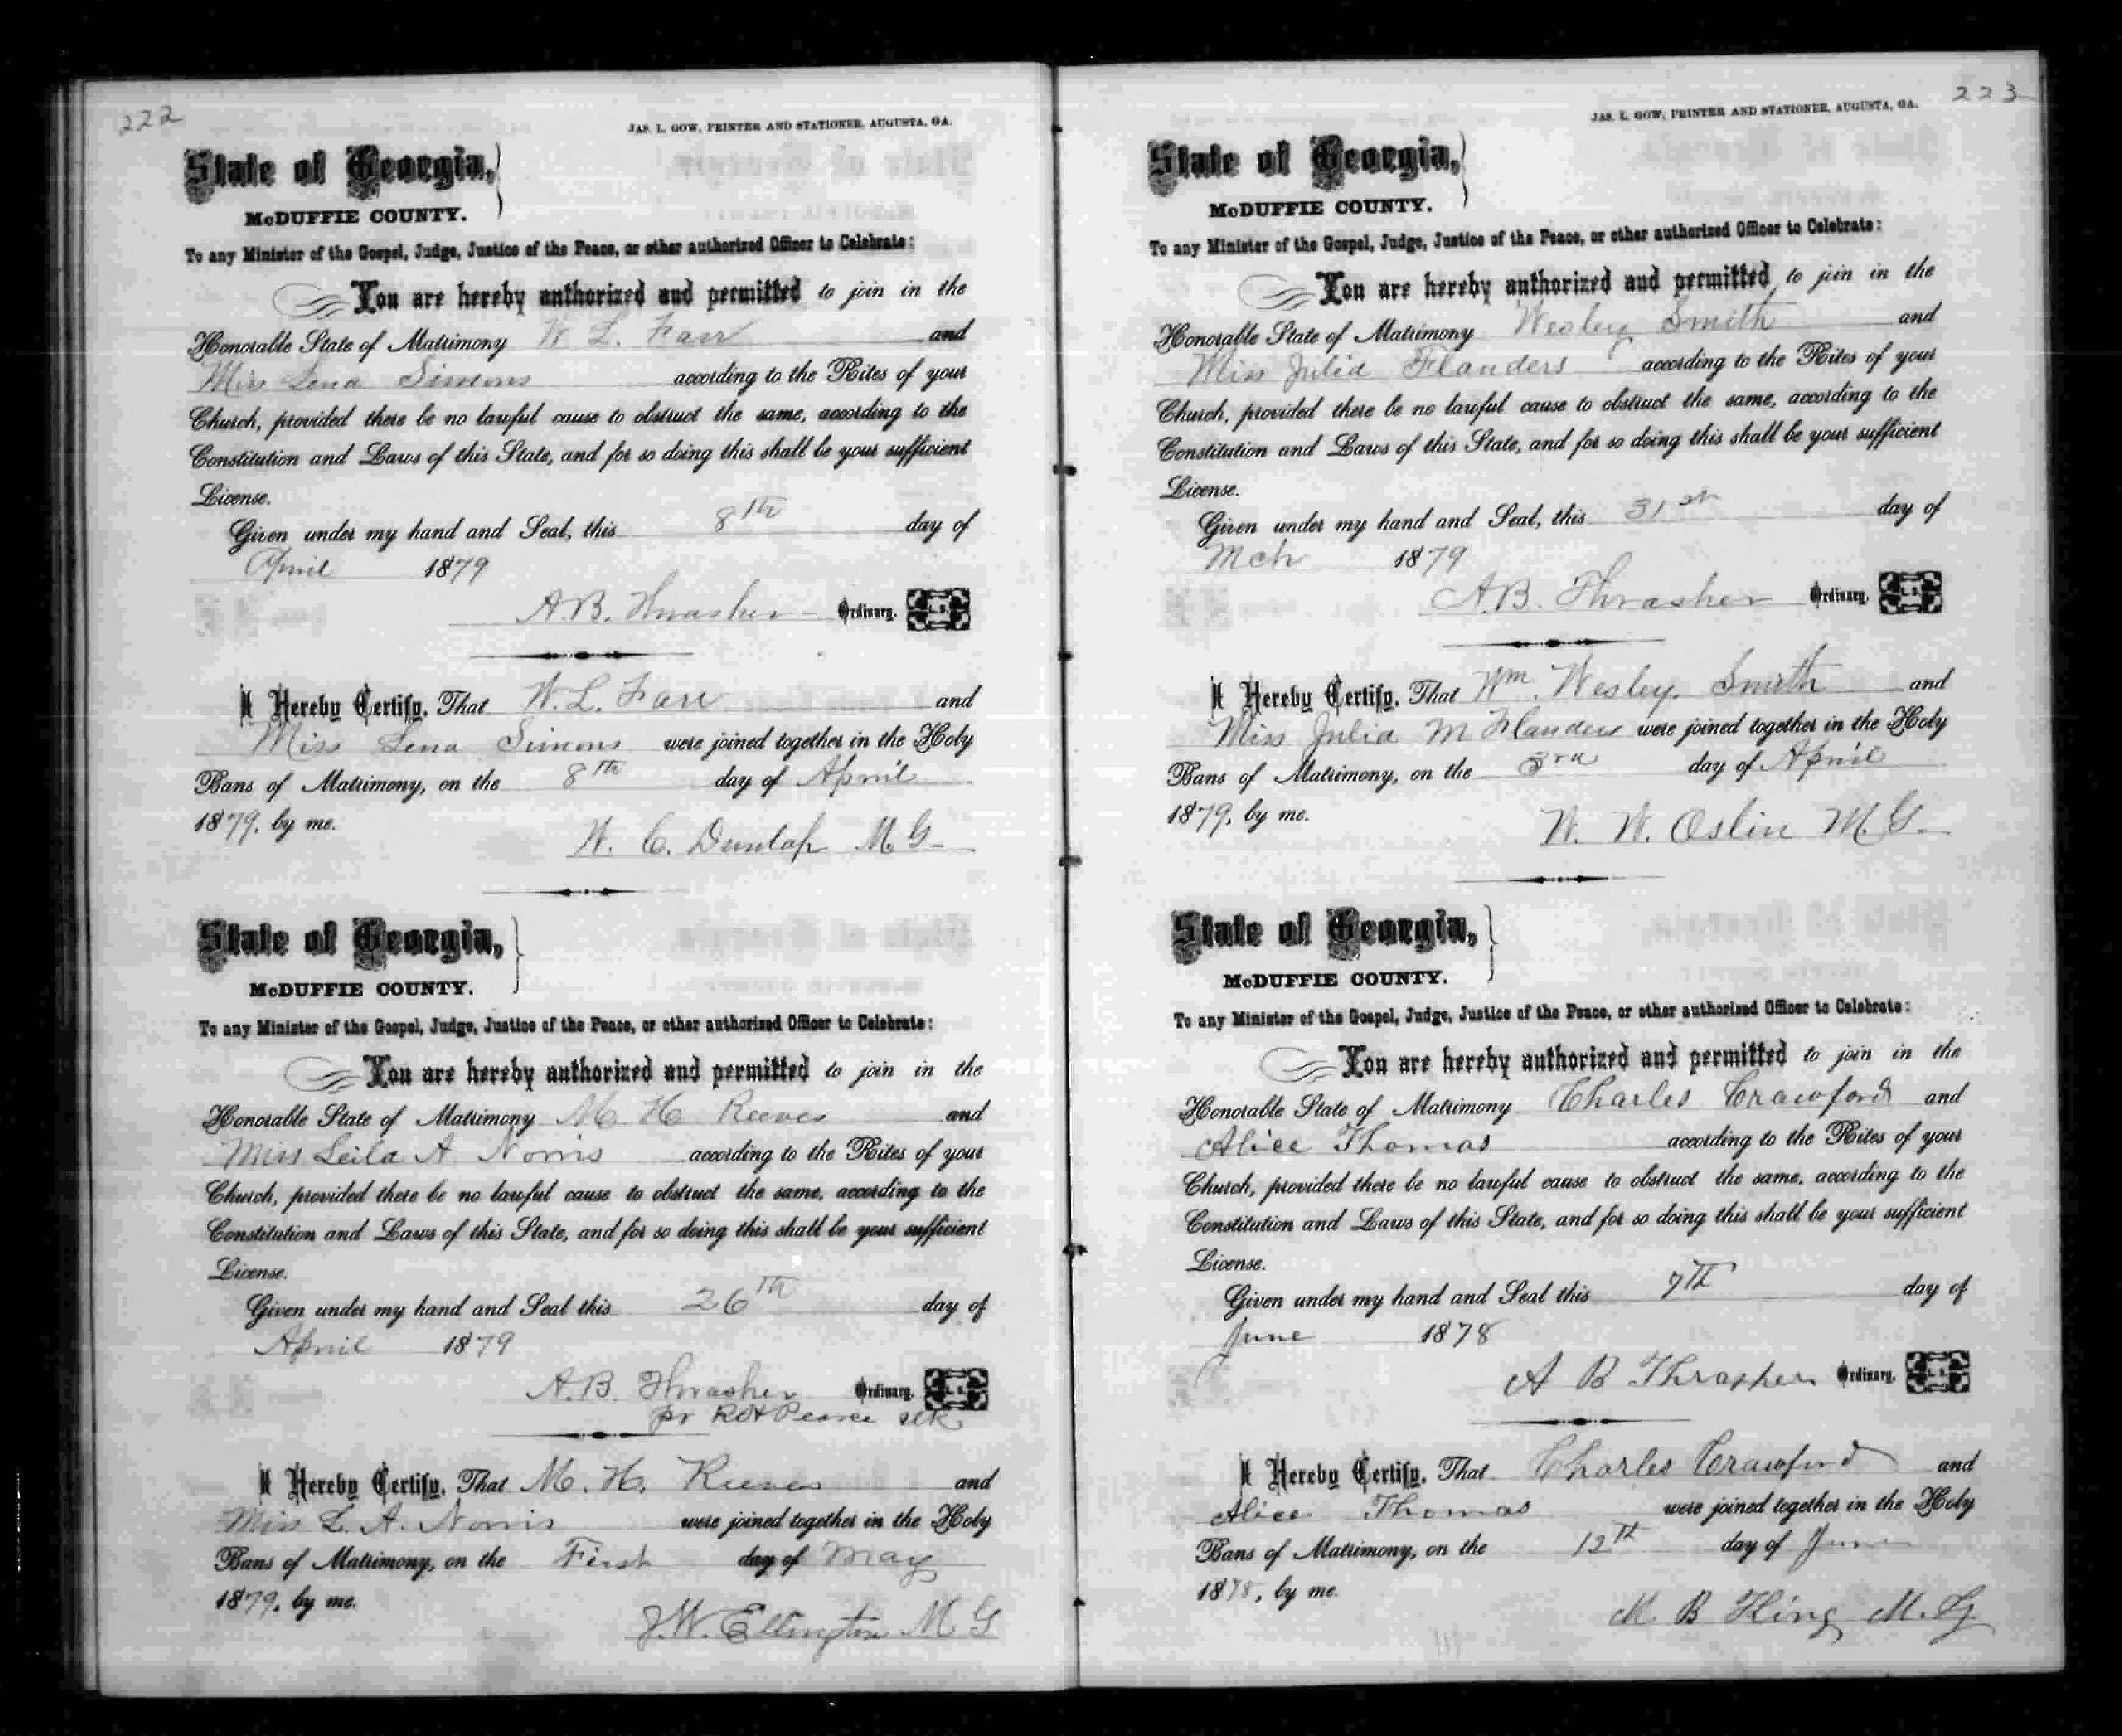 222
JAS. L. GOW, PRINTER AND STATIONER, AUGUSTA, GA.
State of Georgia,
McDUFFIE COUNTY.
To any Minister of the Gospel, Judge, Justice of the Peace, or other authorized Officer to Celebrate:
You are hereby authorized and permitted to join in the
Honorable State of Matrimony W. L. Farr and
Miss Lena Simons according to the Rites of your
Church, provided there be no lawful cause to obstruct the same, according to the
Constitution and Laws of this State, and for so doing this shall be your sufficient
License.
Given under my hand and Seal, this 8th day of
April 1879
A.B. Thrasher Ordinary. L.S.
I Hereby Certify, That W. L. Farr and
Miss Lena Simons were joined together in the Holy
Bans of Matrimony, on the 8th day of April
1879, by me.
W. C. Dunlap M. G.
State of Georgia,
McDUFFIE COUNTY.
To any Minister of the Gospel, Judge, Justice of the Peace, or other authorized Officer to Celebrate:
You are hereby authorized and permitted to join in the
Honorable State of Matrimony M. H. Reeves and
Miss Leila A Norris according to the Rites of your
Church, provided there be no lawful cause to obstruct the same, according to the
Constitution and Laws of this State, and for so doing this shall be your sufficient
License.
Given under my hand and Seal this 26th day of
April 1879
A.B. Thrasher Ordinary. L.S.
pr R H Pearce clk
I Hereby Certify, That M. H. Reeves and
Miss L. A. Norris were joined together in the Holy
Bans of Matrimony, on the First day of May
1879, by me.
J. W. Ellington M G
223
JAS. L. GOW, PRINTER AND STATIONER, AUGUSTA, GA.
State of Georgia,
McDUFFIE COUNTY.
To any Minister of the Gospel, Judge, Justice of the Peace, or other authorized Officer to Celebrate:
You are hereby authorized and permitted to join in the
Honorable State of Matrimony Wesley Smith and
Miss Julia Flanders according to the Rites of your
Church, provided there be no lawful cause to obstruct the same, according to the
Constitution and Laws of this State, and for so doing this shall be your sufficient
License.
Given under my hand and Seal, this 31st day of
Mch 1879
A.B. Thrasher Ordinary. L.S.
I Hereby Certify, That Wm. Wesley Smith and
Miss Julia M Flanders were joined together in the Holy
Bans of Matrimony, on the 3rd day of April
1879, by me.
W. W. Oslin M. G.
State of Georgia,
McDUFFIE COUNTY.
To any Minister of the Gospel, Judge, Justice of the Peace, or other authorized Officer to Celebrate:
You are hereby authorized and permitted to join in the
Honorable State of Matrimony Charles Crawford and
Alice Thomas according to the Rites of your
Church, provided there be no lawful cause to obstruct the same, according to the
Constitution and Laws of this State, and for so doing this shall be your sufficient
License.
Given under my hand and Seal this 7th day of
June 1878
A B Thrasher Ordinary. L.S.
I Hereby Certify, That Charles Crawford and
Alice Thomas were joined together in the Holy
Bans of Matrimony, on the 12th day of June
1878, by me.
M. B King M. G